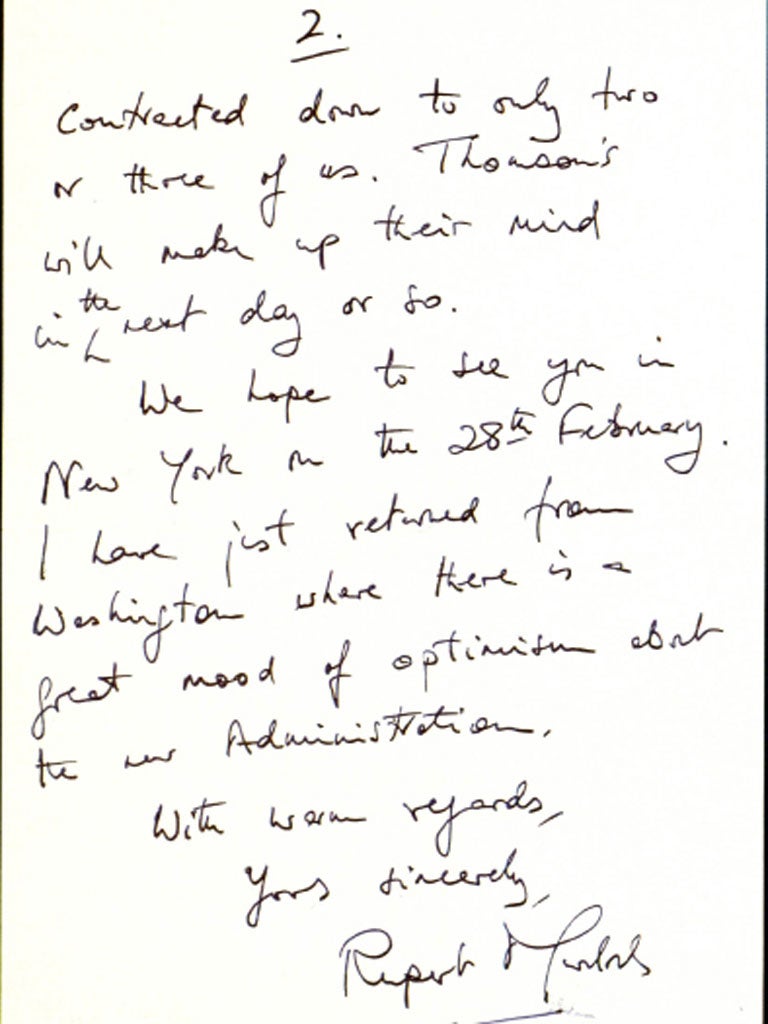 2.
Contracted down to only two
or three of us. Thomson's
will make up their mind
in the next day or so.
We hope to see you in
New York on the 28th February.
I have just returned from
Washington where there is a
great mood of optimism about
the new Administration.
With warm regards,
Yours sincerely,
Rupert Murdoch